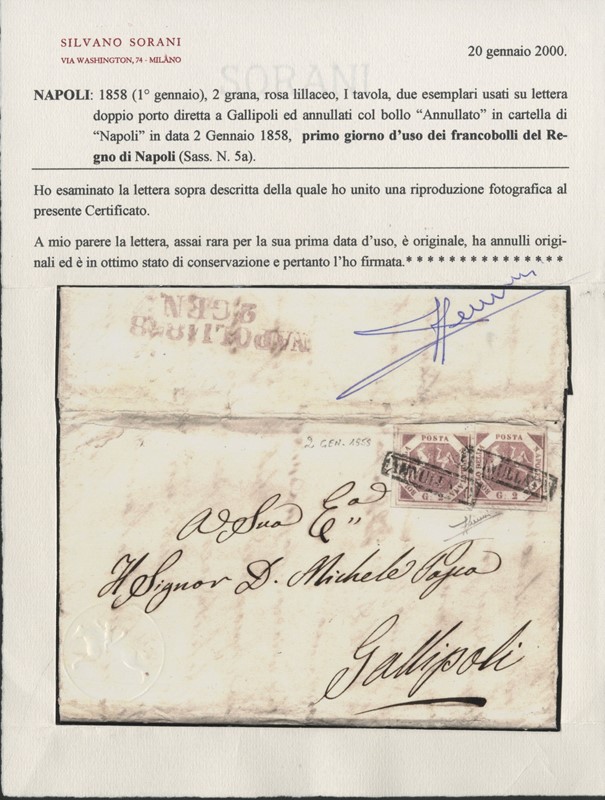 SILVANO SORANI
VIA WASHINGTON, 74 - MILANO
20 gennaio 2000.
SORANI
NAPOLI: 1858 (1° gennaio), 2 grana, rosa lillaceo, I tavola, due esemplari usati su lettera
doppio porto diretta a Gallipoli ed annullati col bollo “Annullato” in cartella di
“Napoli” in data 2 Gennaio 1858, primo giorno d’uso dei francobolli del Re-
gno di Napoli (Sass. N. 5a).
Ho esaminato la lettera sopra descritta della quale ho unito una riproduzione fotografica al
presente Certificato.
A mio parere la lettera, assai rara per la sua prima data d’uso, è originale, ha annulli origi-
nali ed è in ottimo stato di conservazione e pertanto l’ho firmata.* * * * * * * * * * * * * * *
NAPOLI 1858
2 GEN
2 GEN. 1858
POSTA POSTA
ANNULL NULLA
G. 2 G. 2
A Sua E͞a
Il Signor D. Michele
Gallipoli